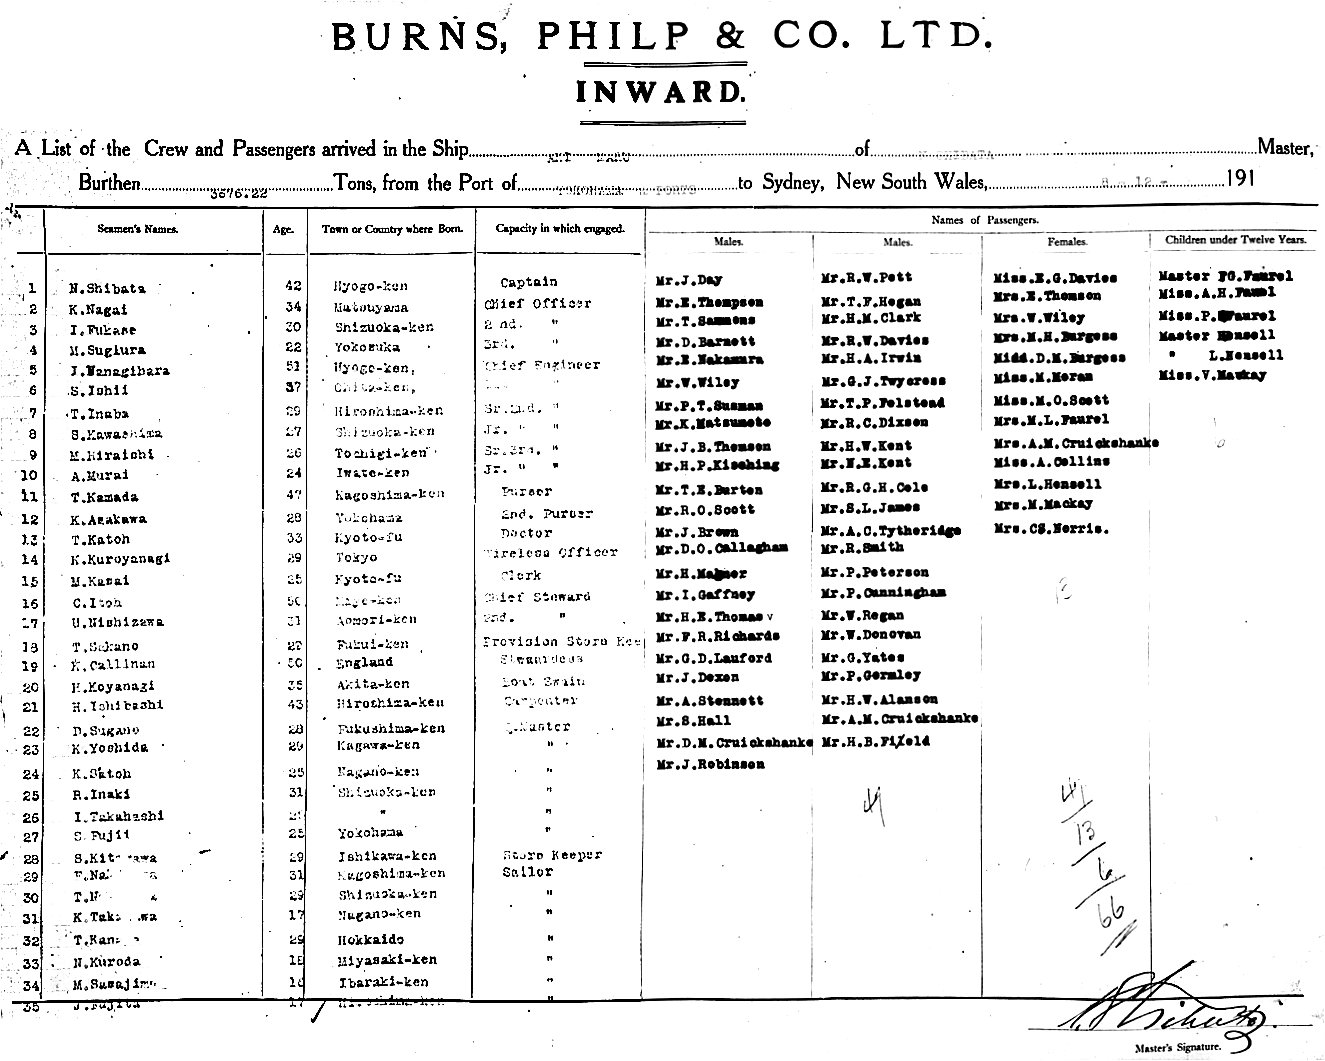 BURNS, PHILP & CO. LTD.
INWARD.
A List of the Crew and Passengers arrived in the Ship MARU of Master,
Burthen 3676.22 Tons, from the Port of YOKOHAMA & PORTS to Sydney, New South Wales, 8 - 12 - 191
Seamen's Names. Age. Town or Country where Born. Capacity in which engaged. Names of Passengers.
Males. Males. Females. Children under Twelve Years.
1 N.Shibata 42 Hyogo-ken Captain Mr.J.Day Mr.R.W.Pett Miss.E.G.Davies Master
2 K.Nagai 34 Matsuyama Chief Officer Mr.E.Thompson Mr.T.F.Hogan Mrs.E.Thomson Miss.A.H.
3 I.Fukase 30 Shizuoka-ken 2nd. " Mr.T.Sammons Mr.H.M.Clark Mrs.V.Wiley Miss.P.
4 M.Sugiura 22 Yokosuka 3rd. " Mr.D.Barnett Mr.R.W.Davies Mrs.M.H.Burgess Master Hensell
5 J.Nanagihara 51 Hyogo-ken, Chief Engineer Mr.B.Nakamura Mr.H.A.Irwin D.M.Burgess " L.Hensell
6 S.Ishii 37 Mr.W.Wiley Mr.G.J.Twycross Miss.M.Moran Miss.V.Mackay
7 T.Inaba 29 Hiroshima-ken Sr.2nd. " Mr.P.T.Susman Mr.T.P.Felstead Miss.M.O.Scott
8 S.Kawashima 27 Shizuoka-ken Jr. " " Mr.K.Matsumoto Mr.R.C.Dixson Mrs.M.L.Faurel
9 M.Hiraishi 26 Tochigi-ken Sr.3rd. " Mr.J.B.Thomson Mr.H.W.Kent Mrs.A.M.Cruickshanke
10 A.Murai 24 Iwate-ken Jr. " " Mr.H.P.Kisching Mr.N.E.Kent Miss.A.Collins
11 T.Kamada 47 Kagoshima-ken Purser Mr.T.E.Burton Mr.R.G.H.Cole Mrs.L.Hensell
12 K.Asakawa 28 Yokohama 2nd. Purser Mr.R.O.Scott Mr.S.L.James Mrs.M.Mackay
13 T.Katoh 33 Kyoto-fu Doctor Mr.J.Brown Mr.A.C.Tytheridge Mrs. Norris.
14 K.Kuroyanagi 29 Tokyo Wireless Officer Mr.D.O.Callagham Mr.R.Smith
15 M.Kasai 25 Kyoto-fu Clerk Mr.H. Mr.P.Peterson
16 C.Itoh 50 Chief Steward Mr.I.Gaffney Mr.P.Cunningham
17 U.Nishizawa 31 Aomori-ken 2nd. " Mr.H.E.Thomas Mr.W.Regan
18 T.Sakano 27 Fukui-ken Provision Store Kee Mr.F.R.Richards Mr.W.Donovan
19 K.Callinan 50 England Stewardess Mr.G.D.Lauford Mr.G.Yates
20 H.Koyanagi 35 Akita-ken Boat Swain Mr.J.Dexon Mr.P.Gormley
21 H.Ishibashi 43 Hiroshima-ken Carpenter Mr.A.Stennett Mr.H.W.Alanson
22 D.Sugano 28 Fukushima-ken Q.Master Mr.S.Hall Mr.A.M.Cruickshanke
23 K.Yoshida 29 Kagawa-ken " Mr.D.M.Cruickshanke Mr.H.B.Fifeld
24 K.Satoh 25 Nagano-ken " Mr.J.Robinson
25 R.Inaki 31 Shizuoka-ken "
26 I.Takahashi " "
27 S.Fujii 25 Yokohama "
28 29 Ishikawa-ken Store Keeper
29 31 Kagoshima-ken Sailor
30 29 Shizuoka-ken "
31 17 Nagano-ken "
32 29 Hokkaido "
33 N.Kuroda 18 Miyasaki-ken "
34 M.Sasajima Ibaraki-ken "
35 J.Fujita 17 "
13
41
41
13
6
66
Master's Signature.